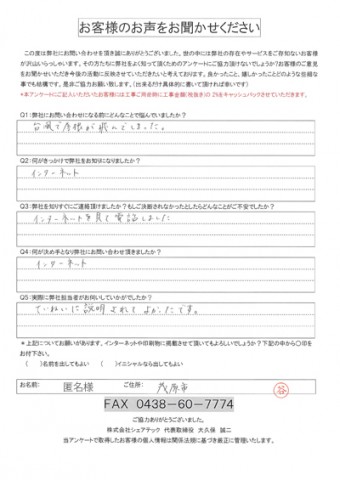 お客様のお声をお聞かせください
この度は弊社にお問い合わせを頂き誠にありがとうございました。世の中には弊社の存在やサービスをご存知ないお客様
が沢山いらっしゃいます。その方たちに弊社をよく知って頂くためのアンケートにご協力頂けないでしょうか?お客様のご意見
をお聞かせいただき今後の活動に反映させていただきたいと考えております。良かったこと、嬉しかったことどのような些細な
事でも結構です。是非ご協力お願い致します。(出来るだけ具体的に書いて頂ければ幸いです)
*本アンケートにご記入いただいたお客様には工事ご用命時に工事金額(税抜き)の2%をキャッシュバックさせていただきます。
Q1:弊社にお問い合わせになる前にどんなことで悩んでいましたか?
台風で屋根が飛んでしまった。
Q2:何がきっかけで弊社をお知りになりましたか?
インターネット
Q3:弊社を知りすぐにご連絡頂けましたか?もしご決断されなかったとしたらどんなことがご不安でしたか?
インターネットを見て電話しました
Q4:何が決め手となり弊社にお問い合わせ頂きましたか?
インターネット
Q5:実際に弊社担当者がお伺いしていかがでしたか?
ていねいに説明されてよかったです。
*上記についてお願いがあります。インターネットや印刷物に掲載させて頂いてもよろしいでしょうか?下記の中から〇印を
お付下さい。
( )名前を出してもよい ( )イニシャルなら出してもよい
お名前: 匿名様 ご住所: 茂原市
FAX 0438-60-7774
ご協力ありがとうございました。
株式会社シェアテック 代表取締役 大久保 誠二
当アンケートで取得したお客様の個人情報は関係法規に基づき厳正に管理いたします。